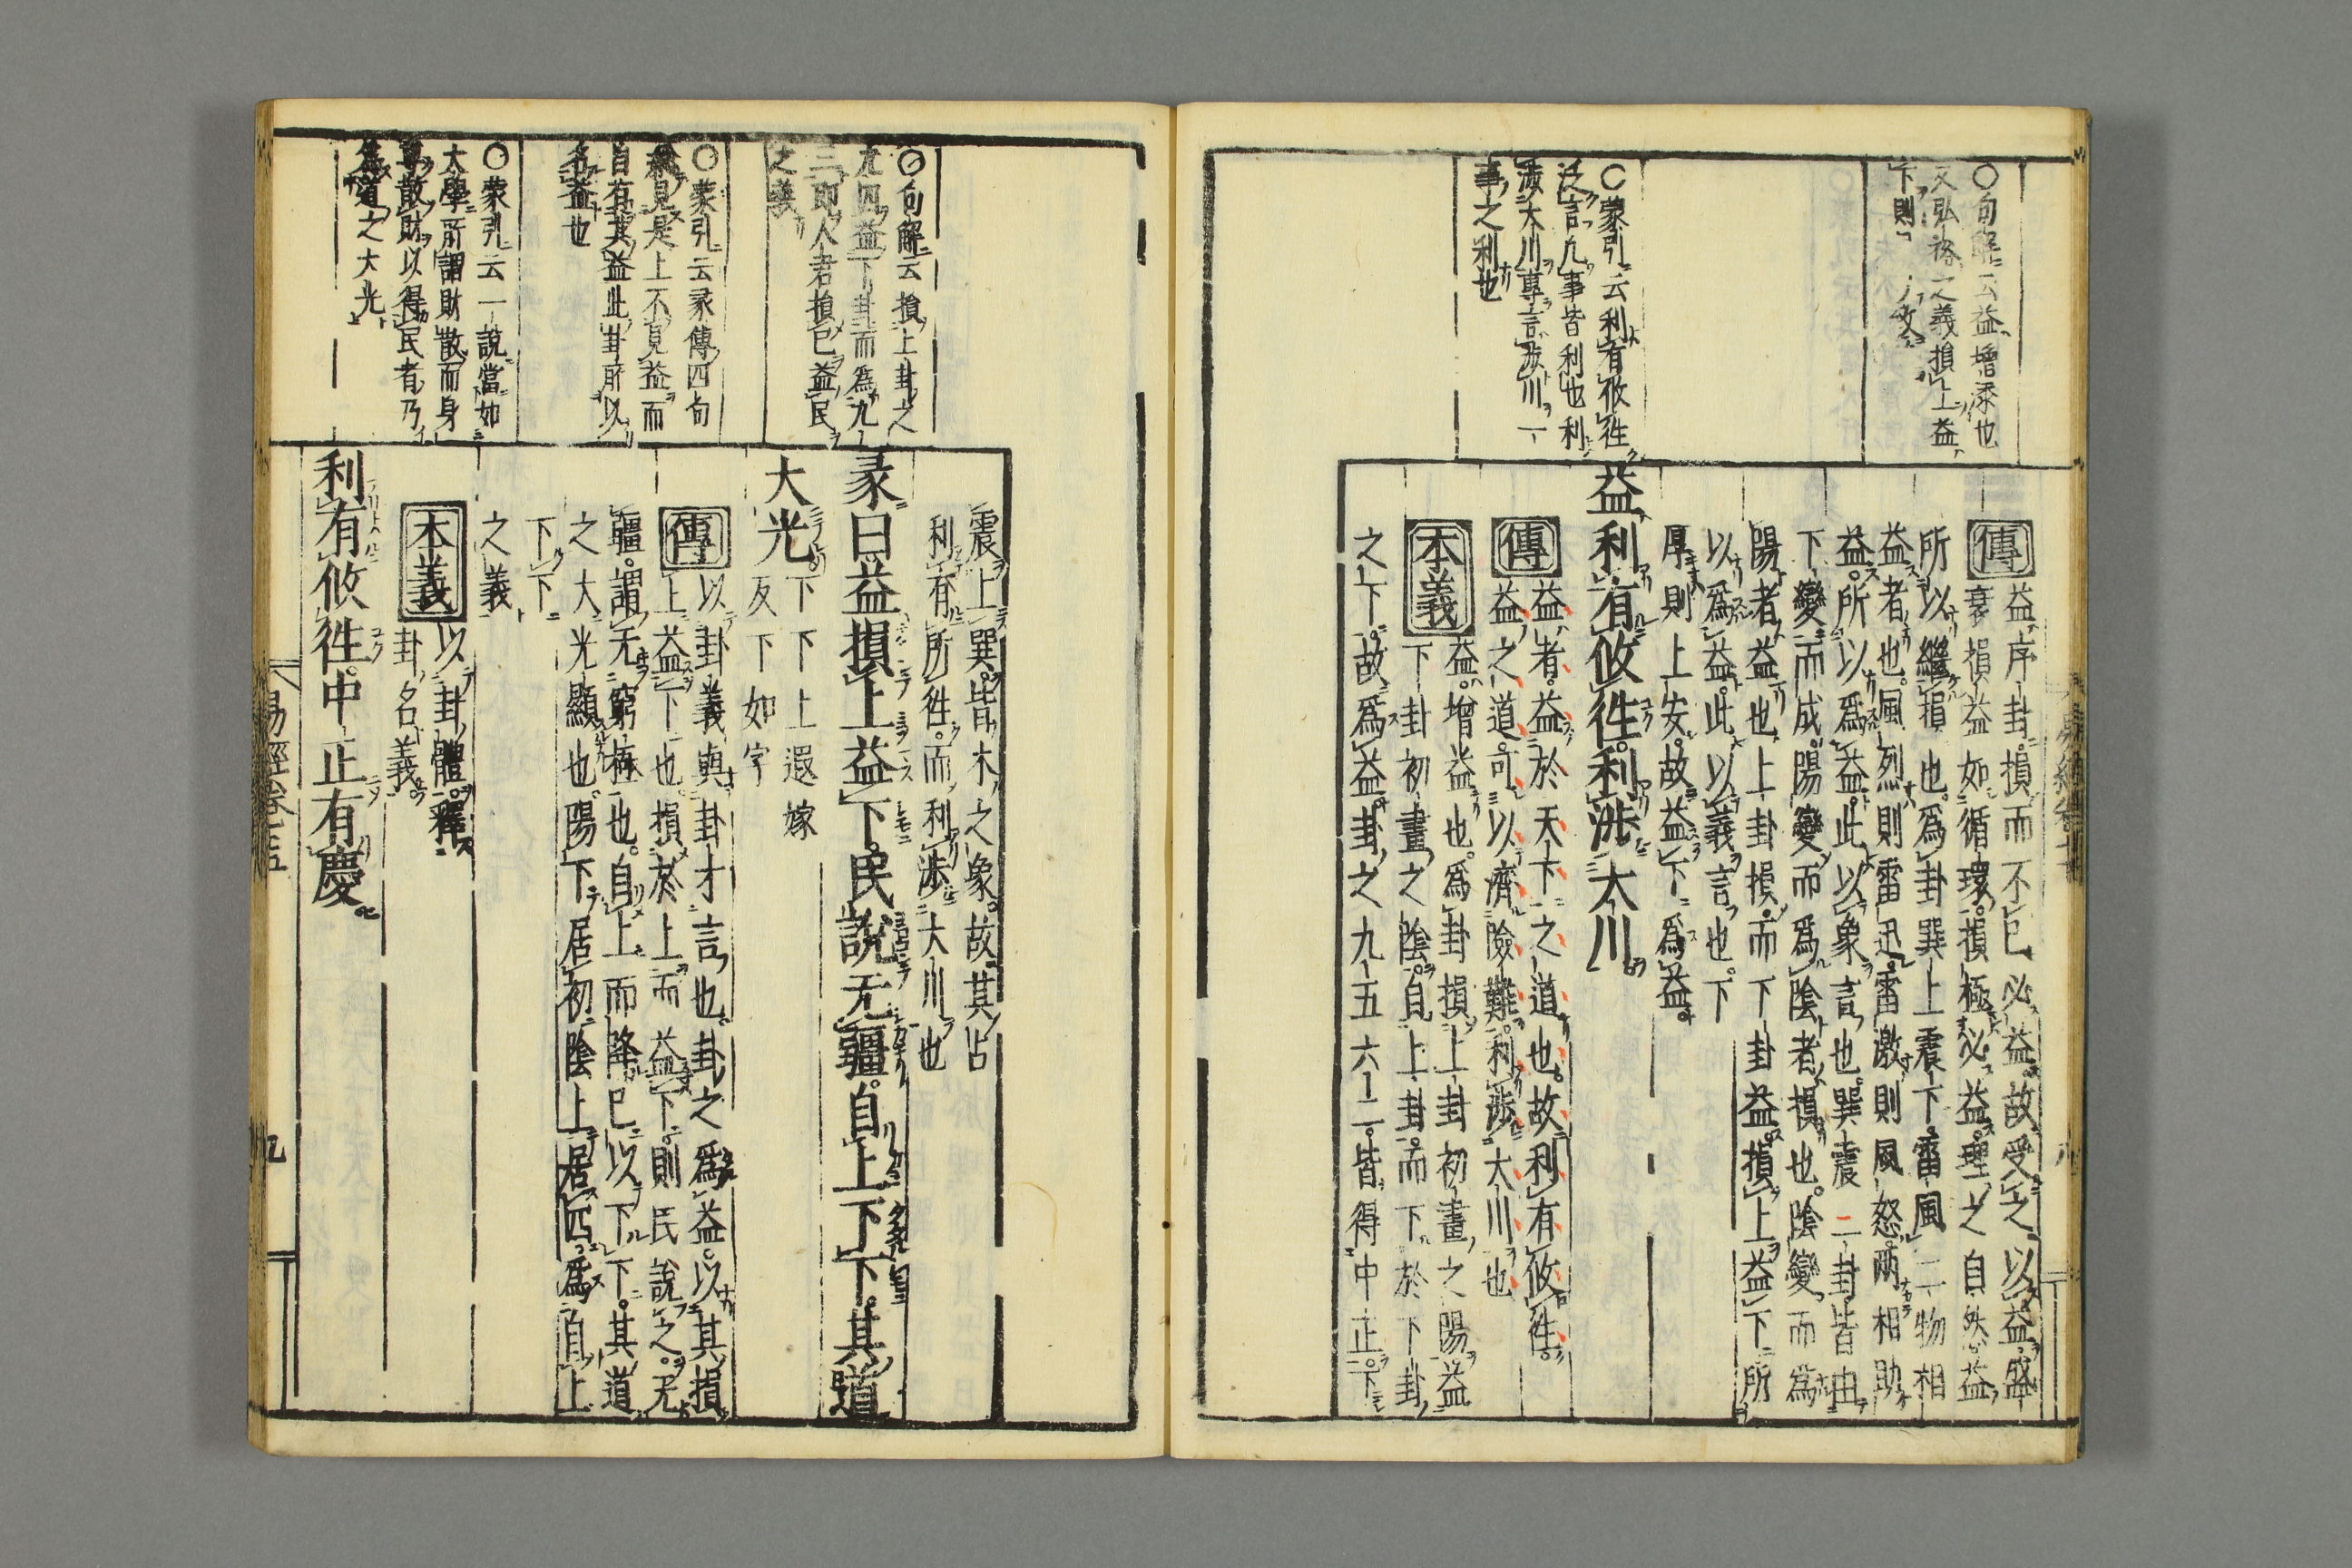 ○句解云益增添也
又弘裕之義損上益
下則
○蒙引云利有攸往
泛言凡事皆利也利
涉大川專言涉川一
事之利也
傳 益序卦損而不已必益故受之以益盛
衰損益如循環損極必益理之自然益
所以繼損也爲卦巽上震下雷風二物相
益者也風烈則雷迅雷激則風怒兩相助
益所以爲益此以象言也巽震二卦皆由
下變而成陽變而爲陰者損也陰變而爲
陽者益也上卦損而下卦益損上益下所
以爲益此以義言也下
厚則上安故益下爲益
益利有攸往利涉大川
傳 益者益於天下之道也故利有攸往
益之道可以濟險難利涉大川也
本義 益增益也爲卦損上卦初畫之陽益
下卦初畫之陰自上卦而下於下卦
之下故爲益卦之九五六二皆得中正下
○句解云損上卦之
九四益下卦而爲九
三即人君損已益民
之義
○蒙引云彖傳四句
自有其益此卦所以
名益也
○蒙引云一說當如
大學所謂財散而身
尊散財以得民者乃
爲道之大光
震上巽皆木之象故其占
利有所往而利涉大川也
彖曰益損上益下民說无疆自上下下其道
大光 下下上遐嫁
反下如字
傳 以卦義與卦才言也卦之爲益以其損
上益下也損於上而益下則民說之无
疆謂无窮極也自上而降已以下下其道
之大光顯也陽下居初陰上居四爲自上
下下
之義
本義 以卦體釋
卦名義
利有攸往中正有慶
易經卷五
九